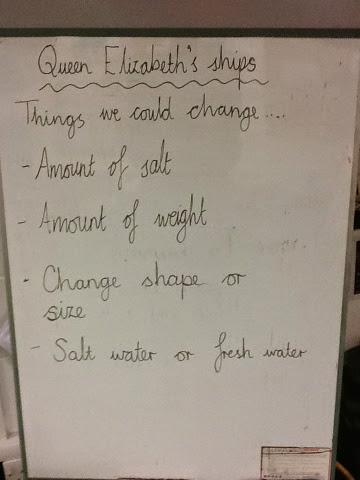 Queen Elizabeth's ships
Things we could change....
- Amount of salt
- Amount of weight
- Change shape or
size
- Salt water or fresh water